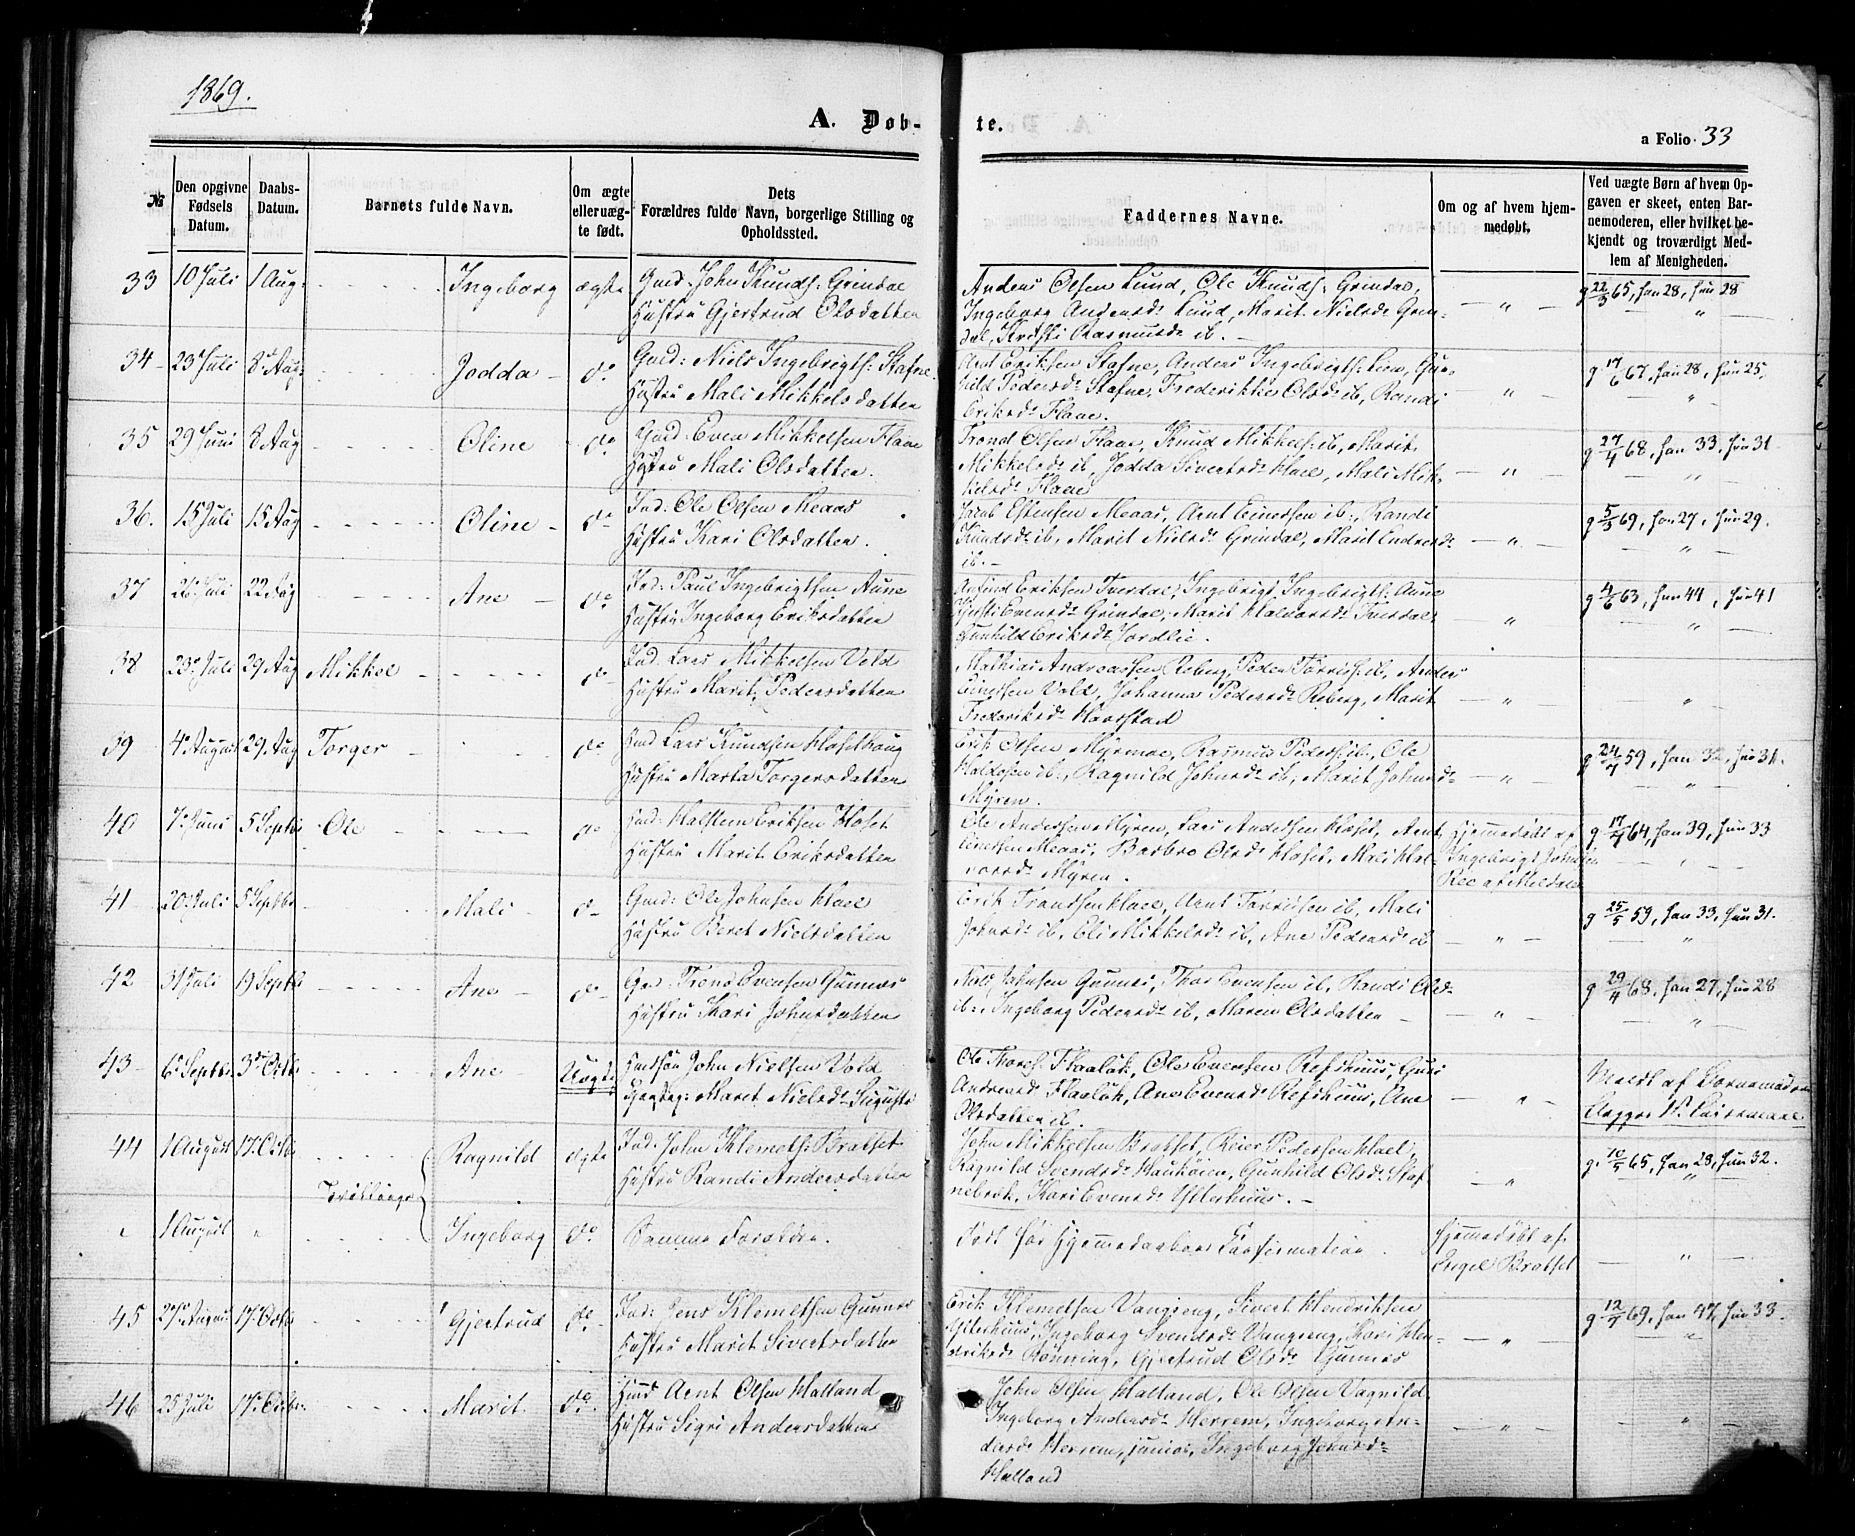 1869.
A. Døb-
te.
a Folio 33
№
Den opgivne Fødsels Datum.
Daabs-Datum.
Barnets fulde Navn.
Om ægte eller uæg-te født.
Dets Forældres fulde Navn, borgerlige Stilling og Opholdssted.
Faddernes Navne.
Om og af hvem hjem-medøbt.
Ved uægte Børn af hvem Op-gaven er skeet, enten Bar-nemoderen, eller hvilket be-kjendt og troværdigt Med-lem af Menigheden.
33 10 Juli 1 Aug: Ingeborg ægte Gmd: John Knuds: Grindal
Hustru Gjertrud Olsdatter
Anders Olsen Lund, Ole Knuds: Grindal,
Ingeborg Andersd: Lund, Marit Nielsd: Grin-
dal, Kristi Rasmusd: ib. —
g 22/3 65, han 28, hun 28
34 23 Juli 8 Aug: Jodda do Gmd: Niels Ingebrigts: Stafne
Hustru Mali Mikkelsdatter
Arnt Eriksen Stafne, Anders Ingebrigts: Lien, Gun-
hild Pedersd: Stafne, Frederikke Olsd: ib, Randi
Eriksd: Flaae.
g 17/6 67, han 28, hun 25,
35 29 Juni 8 Aug Oline do Gmd: Even Mikkelsen Flaae
Hustru Mali Olsdatter.
Trond Olsen Flaae, Knud Mikkels: ib, Marit
Mikkelsd: ib, Jodda Sivertsd: Hael, Mali Mik-
kelsd: Flaae
g 27/4 68, han 33, hun 31
36. 15 Juli 15 Aug Oline do Ind: Ole Olsen Meaas
Hustru Kari Olsdatter.
Jacob Estensen Meaas, Arnt Einersen ib:, Randi
Knudsd: ib, Marit Nielsd: Grindal, Marit Endresd:
ib. —
g 5/3 69, han 27, hun 29.
37 26 Juli 22 Aug Ane do Ind: Paul Ingebrigtsen Aune
Hustru Ingeborg Eriksdatter
Eriksen Tverdal, Ingebrigt Ingebrigts: Aune
Evensd: Grindal, Marit Haldorsd: Tverdal
Gunhild Eriksd: Jordlie.
g 4/6 63, han 44, hun 41
38 23 Juli 29 Aug Mikkel do Ind: Lars Mikkelsen Vold
Hustru Marit Pedersdatter
Mathias Andreassen Roberg, Peder Tørris: ib, Anders
Einersen Vold, Johanna Pedersd: Roberg, Marit
Frederiksd: Haarstad
39 4 August 29 Aug Torger do Ind Lars Knudsen Hosethaug
Hustru Marta Torgersdatter
Erik Olsen Myrmoe, Rasmus Peders: ib, Ole
Haldosen ib:, Ragnild Johnsd: ib, Marit Johnsd:
Myren.
g 24/7 59, han 32, hun 31.
40 7 Juni 5 Septbr Ole do Ind: Halstein Eriksen Hoset
Hustru Marit Eriksdatter
Ole Andersen Myren, Lars Andersen Hoset, Arnt
Einersen Meaas, Barbro Olsd: Hoset, Hal-
vorsd: Myren.
Hjemmedøbt af
Ingebrigt Johnsen
Ree af Meldalen
g 17/4 64, han 39, hun 33
41 20 Juli 5 Septbr Mali do Gmd: Ole Johnsen Hael
Hustru Beret Nielsdatter
Erik Trondsen Hael, Arnt Tørrisen ib, Mali
Johnsd: ib, Eli Mikkelsd: ib, Ane Pedersd: ib
g 25/5 59, han 33, hun 31.
42 31 Juli 19 Septbr Ane do Trond Evensen Gunnes
Hustru Kari Johnsdatter
Johnsen Gunnes, Thor Evensen ib, Randi Olsd:
ib:, Ingeborg Pedersd: ib, Maren Olsdatter
g 29/4 68, han 27, hun 28
43 6 Septbr 3 Octb Ane Uægte John Nielsen Vold
Maret Nielsd:
Ole Flaaløk, Ole Evensen Refshuus, Guri
Andersd: Flaaløk, Ane Evensd: Refshuus, Ane
Olsdatter ib.
Meldt af Barnemoderen
44 1 August 17 Octbr Ragnild ægte Ind: John Klemets: Bratset
Hustru Randi Andersdatter
John Mikkelsen Bratset, Reier Pedersen Hael,
Ragnild Svendsd: Haukøien, Gunhild Olsd: Staf-
nebrøk, Kari Evensd: Ytterhuus. —
g. 10/5 65, han 28, hun 32.
Trillinger
1 August Ingeborg do Samme Forældre.
Død før Hjemmedaabens Confirmation.
Hjemmedøbt af
Engel Bratset
45 27 August 17 Octbr Gjertrud do Ind: Jens Klemetsen Gunnes
Hustru Marit Sivertsdatter
Erik Klemetsen Vangseng, Sivert Hendriksen
Ytterhuus, Ingeborg Svendsd: Vangseng, Kari Hen-
driksd: Rønning, Gjertrud Olsd: Gunnes
g 12/7 69, han 47, hun 33.
46 25 Juli 17 Octbr Marit do Arnt Olsen Halland
Hustru Sigri Andersdatter
John Olsen Halland, Ole Olsen Vagnild
Ingeborg Andersd: Herrem, Ingeborg An-
dersd: Herrem, junior, Ingeborg Johnsd:
Halland